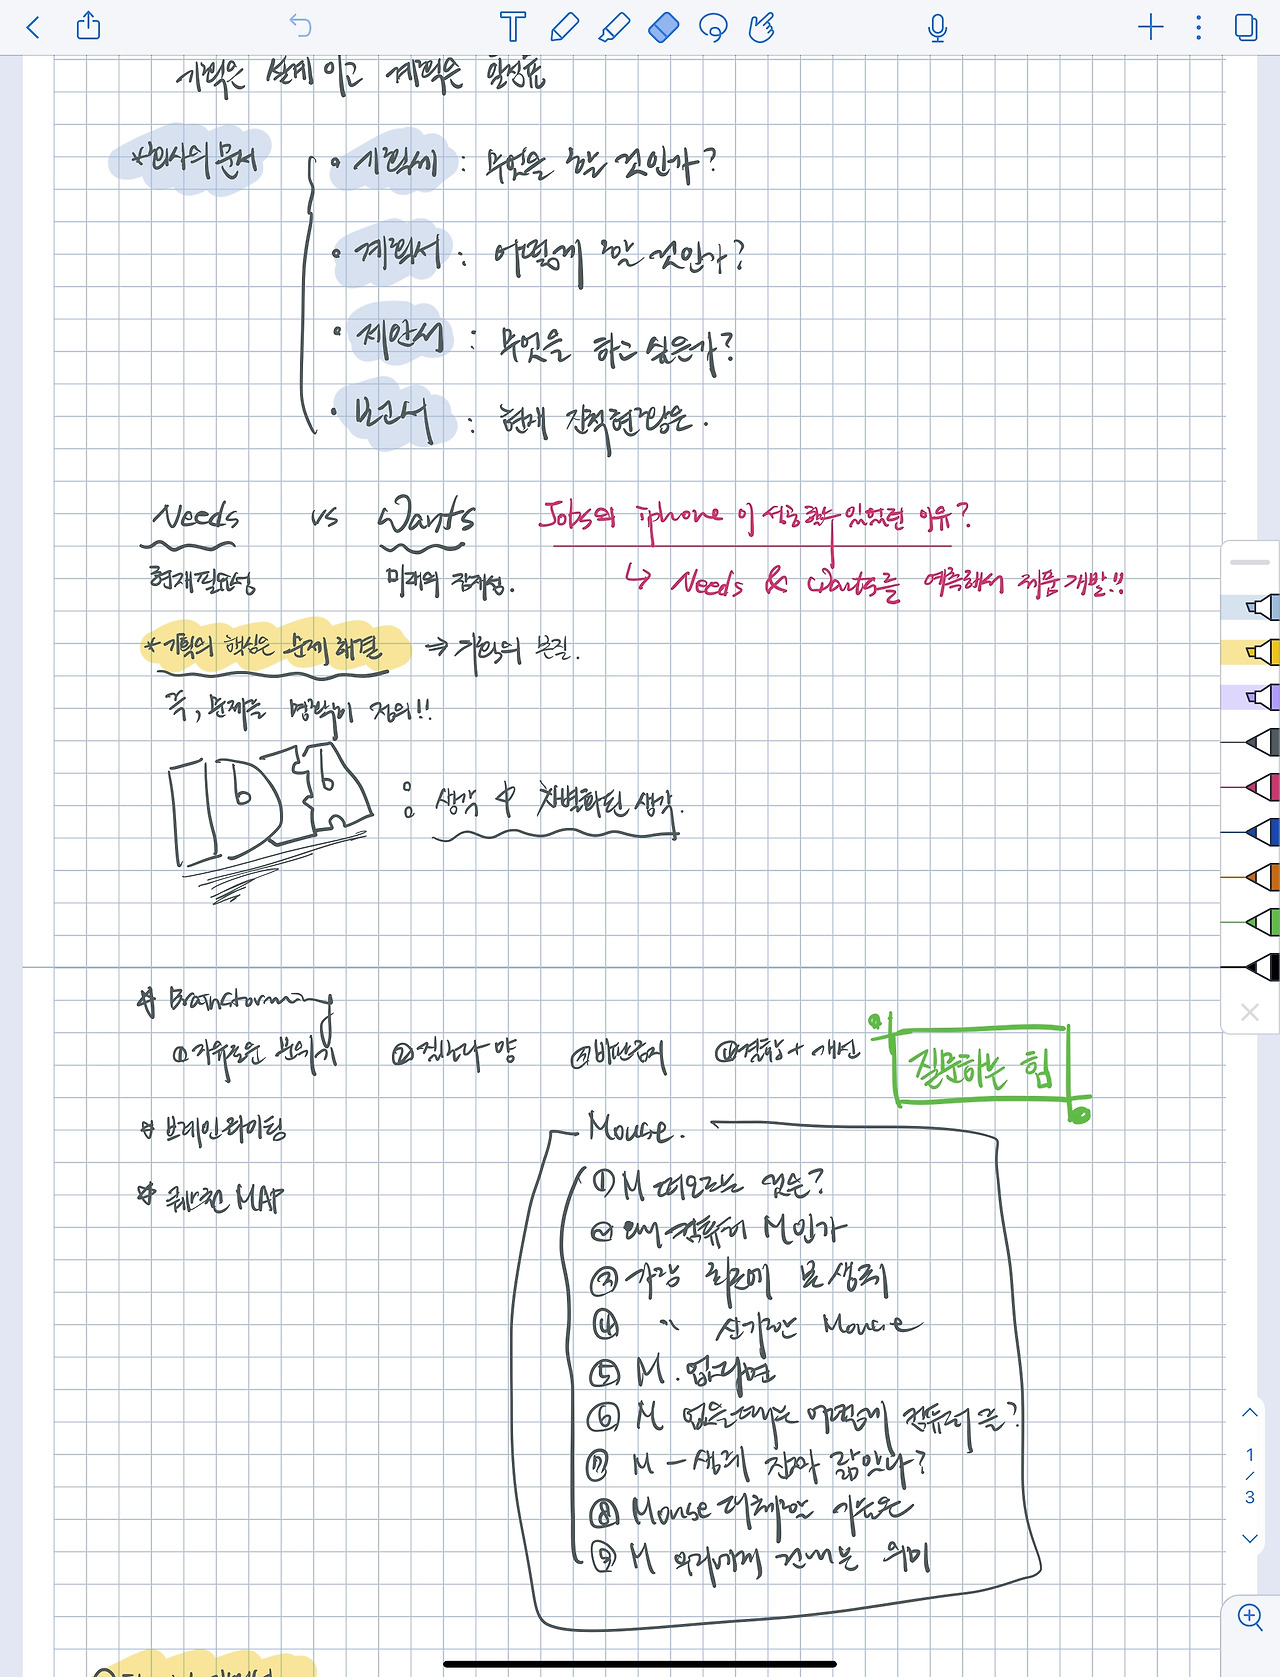 기획은 설계이고 계획은 일정표
*회사의 문서
• 기획서 : 무엇을 할 것인가?
• 계획서 : 어떻게 할 것인가?
• 제안서 : 무엇을 하고 싶은가?
• 보고서 : 현재 진척현황은.
Needs vs Wants
현재필요성 미래의 잠재성.
Jobs의 iphone이 성공할수 있었던 이유?
↳ Needs & Wants를 예측해서 제품개발!!
*기획의 핵심은 문제해결 ⇒ 기획의 본질.
즉, 문제를 명확히 정의!!
: 생각 차별화된 생각.
* Brainstorming
① 자유로운 분위기 ② 질보다 양 ③ 비판금지 ④ 결합 + 개선
질문하는 힘
* 브레인라이팅
* 퀘스천 MAP
Mouse.
① M 떠오르는 것은?
② 왜 컴퓨터 M인가
③ 가장 최근에 본 생쥐
④ 〃 신기한 Mouse
⑤ M. 없다면
⑥ M 없을때는 어떻게 컴퓨터를?
⑦ M - 생쥐 진짜 닮았나?
⑧ Mouse 대체할 기능은
⑨ M 우리에게 건네는 의미
1
/
3